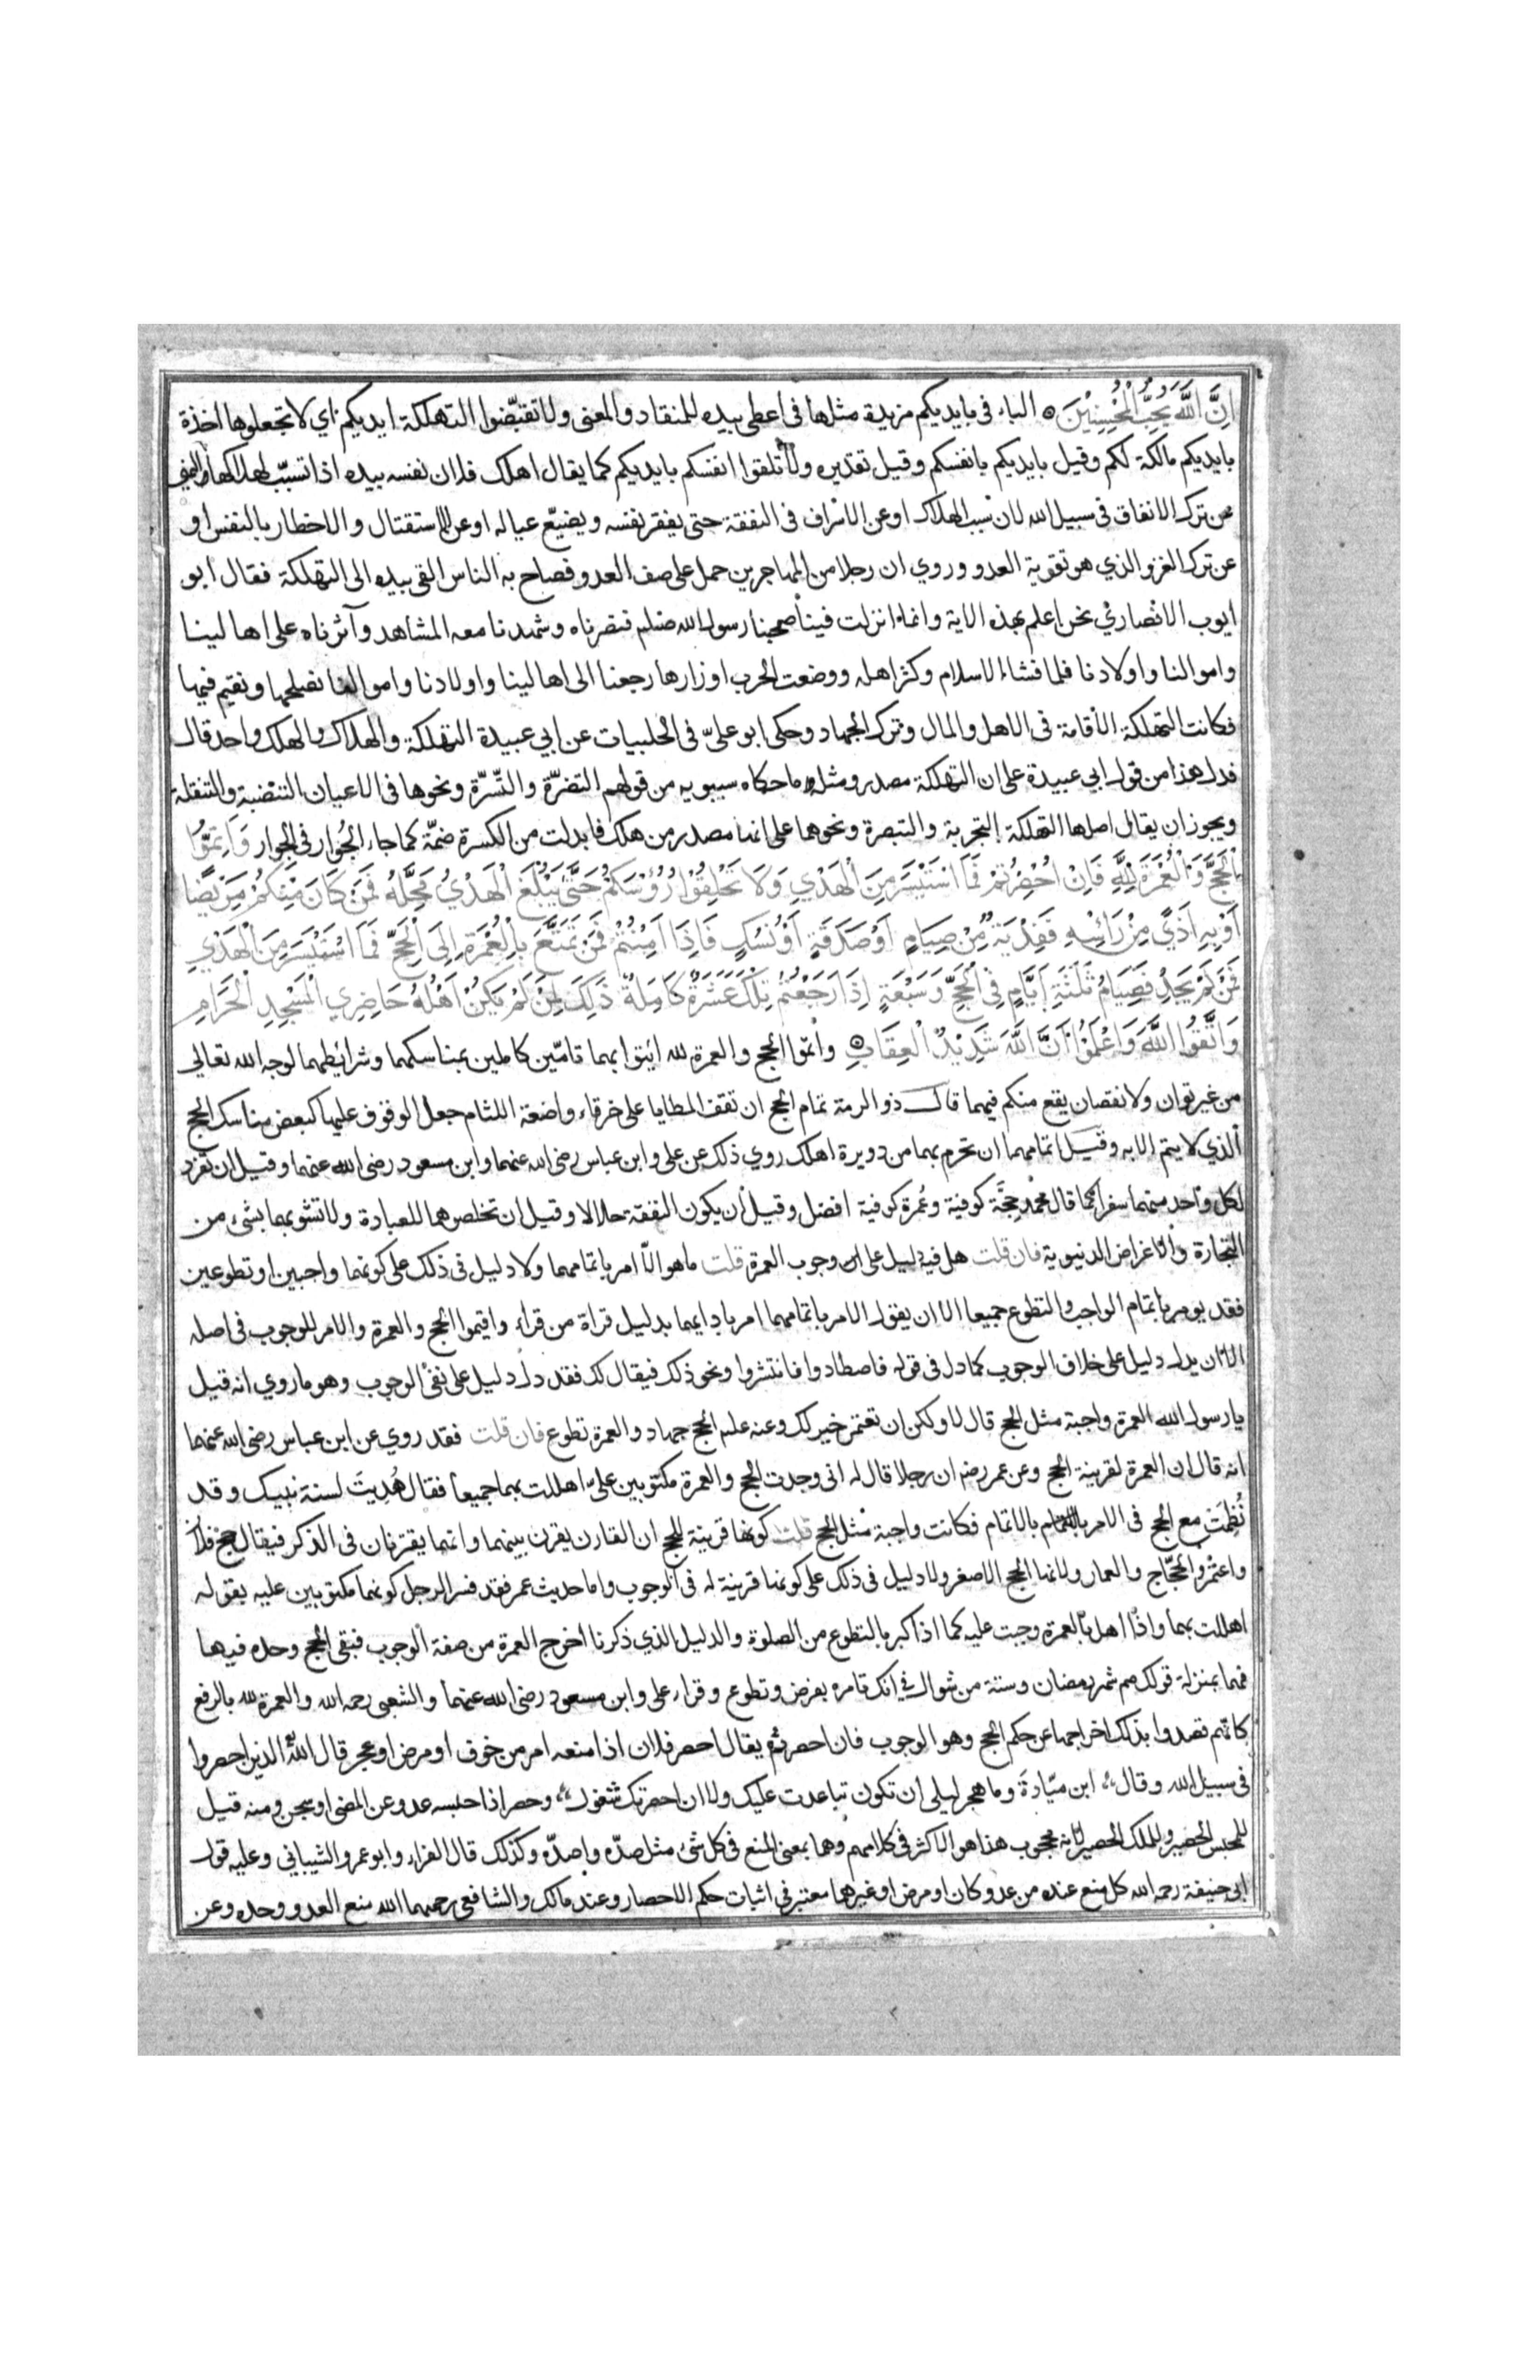 اِنَّ اللَّهَ يُحِبُّ الْمُحْسِنِيْنَ ۝ الباء فى بايديكم مزيدة مثلها فى اعطى بيده للمنقاد والمعنى ولا تقبّضوا التهلكة ايديكم اي لا تجعلوها اخذة
بايديكم مالكة لكم وقيل بايديكم بانفسكم وقيل تقديره ولا تلقوا انفسكم بايديكم كما يقال اهلك فلان نفسه بيده اذا تسبّب لهلاكها والمعنى
عن ترك الانفاق فى سبيل الله لان سبب الهلاك اوعن الاسراف فى النفقة حتى يفقر نفسه ويضيّع عياله اوعن الاستقتال والاخطار بالنفس او
عن ترك الغزو الذي هو تقوية العدو وروي ان رجلا من المهاجرين حمل على صف العدو فصاح به الناس القى بيده الى التهلكة فقال ابو
ايوب الانصاري نحن اعلم بهذه الاية وانما انزلت فينا صحبنا رسول الله صلعم فنصرناه وشهدنا معه المشاهد وآثرناه على اهالينا
واموالنا واولادنا فلما فشا الاسلام وكثر اهله ووضعت الحرب اوزارها رجعنا الى اهالينا واولادنا واموالنا نصلحها ونقيم فيها
فكانت التهلكة الاقامة فى الاهل والمال وترك الجهاد وحكى ابو علىّ فى الحلبيات عن ابي عبيدة التهلكة والهلاك والهلك واحد قال
فدل هذا من قول ابي عبيدة على ان التهلكة مصدر ومثله ما حكاه سيبويه من قولهم التضرّة والتسرّة ونحوها فى الاعيان التنضبة والتنفلة
ويجوز ان يقال اصلها التهلكة التجربة والتبصرة ونحوهما على انها مصدر من هلك فابدلت من الكسرة ضمّة كما جاء الجُوار فى الجِوار وَاَتِمُّوا
الْحَجَّ وَالْعُمْرَةَ لِلَّهِ فَاِنْ اُحْصِرْتُمْ فَمَا اسْتَيْسَرَ مِنَ الْهَدْيِ وَلَا تَحْلِقُوْا رُؤُسَكُمْ حَتَّى يَبْلُغَ الْهَدْيُ مَحِلَّهُ فَمَنْ كَانَ مِنْكُمْ مَرِيْضًا
اَوْبِهِ اَذًى مِنْ رَأسِهِ فَفِدْيَةٌ مِنْ صِيَامٍ اَوْ صَدَقَةٍ اَوْنُسُكٍ فَاِذَا اَمِنْتُمْ فَمَنْ تَمَتَّعَ بِالْعُمْرَةِ اِلَى الْحَجِّ فَمَا اسْتَيْسَرَ مِنَ الْهَدْيِ
فَمَنْ لَمْ يَجِدْ فَصِيَامُ ثَلٰثَةِ اَيَّامٍ فِى الْحَجِّ وَسَبْعَةٍ اِذَا رَجَعْتُمْ تِلْكَ عَشَرَةٌ كَامِلَةٌ ذٰلِكَ لِمَنْ لَمْ يَكُنْ اَهْلُهُ حَاضِرِي الْمَسْجِدِ الْحَرَامِ
وَاتَّقُوْا اللَّهَ وَاعْلَمُوْا اَنَّ اللَّهَ شَدِيْدُ الْعِقَابِ ۝ واتمّوا الحج والعمرة لله ائتوا بهما تامّين كاملين بمناسكهما وشرائطهما لوجه الله تعالى
من غير توان ولا نقصان يقع منكم فيهما قال ذو الرمة تمام الحج ان تقف المطايا على خرقاء واضعة اللثام جعل الوقوف عليها كبعض مناسك الحج
الذي لا يتم الا به وقيل اتمامهما ان تحرم بهما من دويرة اهلك روي ذلك عن على وابن عباس رضى الله عنهما وابن مسعود رضى الله عنهما وقيل ان تفرد
لكل واحد منهما سفرا كما قال محمد حِجَّة كوفية وعُمرة كوفية افضل وقيل ان يكون النفقة حلالا وقيل ان تخلصوهما للعبادة ولا تشوبهما بشئ من
التجارة والاغراض الدنيوية فان قلت هل فيه دليل على وجوب العمرة قلت ما هو الّا امر باتمامهما ولا دليل فى ذلك على كونهما واجبين او تطوعين
فقد يومر باتمام الواجب والتطوع جميعا الا ان يقول الامر باتمامهما امر بادايهما بدليل قراة من قرأ واقيموا الحج والعمرة والامر للوجوب فى اصله
الا ان يدل دليل على خلاف الوجوب كما دل فى قوله فاصطادوا فانتشروا ونحو ذلك فيقال لك فقد دل دليل على نفى الوجوب وهو ما روي انه قيل
يا رسول الله العمرة واجبة مثل الحج قال لا ولكن ان تعتمر خير لك وعنه علم الحج جهاد والعمرة تطوع فان قلت فقد روي عن ابن عباس رضى الله عنهما
انه قال ان العمرة لقرينة الحج وعن عمر رضه ان رجلا قال له انى وجدت الحج والعمرة مكتوبين علىّ اهللت بهما جميعا فقال هُدِيتَ لسنة نبيك وقد
نُظِمَتِ مع الحج فى الامر بالاتمام فكانت واجبة مثل الحج قلت كونها قرينة للحج ان القارن يقرن بينهما وانهما يقترنان فى الذكر فيقال حج فلان
واعتمر والحجّاج والعمار ولانها الحج الاصغر ولا دليل فى ذلك على كونها قرينة له فى الوجوب واما حديث عمر فقد فسر الرجل كونهما مكتوبين عليه بقوله
اهللت بهما واذا اهل بالعمرة وجبت عليه كما اذا كبر بالتطوع من الصلوة والدليل الذي ذكرنا اخرج العمرة من صفة الوجوب فبقى الحج وحده فيها
فهما بمنزلة قولك صم شهر رمضان وستة من شوال فى انك تامره بفرض وتطوع وقراء على وابن مسعود رضى الله عنهما والشعبى رحمه الله والعمرة لله بالرفع
كانهم قصدوا بذلك اخراجها عن حكم الحج وهو الوجوب فان احصرتم يقال احصر فلان اذا منعه امر من خوف او مرض او عجز قال الله الذين احصروا
فى سبيل الله وقال ابن ميّادة وما هجر ليلى ان تكون تباعدت عليك ولا ان احصرتك شغول وحصر اذا حبسه عدو عن المضى او سجن ومنه قيل
للمحبس الحصير وللملك الحصير لانه محجوب هذا هو الاكثر فى كلامهم وهما بمعنى المنع فى كل شئ مثل صدّه واصدّه وكذلك قال الفراء وابو عمرو الشيبانى وعليه قول
ابى حنيفة رحمه الله كل منع عنده من عدو كان او مرض او غيرهما معتبر فى اثبات حكم الاحصار وعند مالك والشافعى رحمهما الله منع العدو وحده وعن